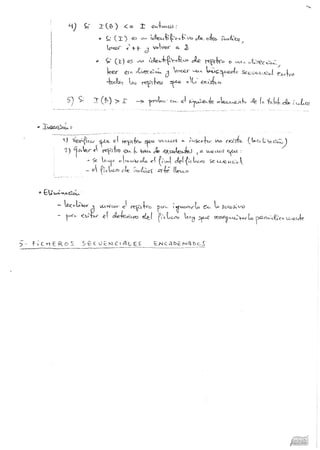 4) Si I(B) <= I entonces:
• Si (I) es un identificativo de otro índice,
leer i++ y volver a 2
• Si (I) es un identificativo de registro o una dirección,
leer esa dirección y hacer una búsqueda secuencial entre
todos los registros que allí existan
5) Si I(B) > I → probar con el siguiente elemento de la tabla de índices
• Inserción:
1) Verificar que el registro que vamos a insertar no exista (localización)
2) grabar el registro en la zona de excedentes, a menos que:
- Se haga al final del fichero secuencial
- el fichero de índices esté lleno
• Eliminación
- localizar y marcar el registro para ignorarlo en lo sucesivo
- para evitar el deterioro del fichero hay que reorganizarlo periódicamente
5- FICHEROS SECUENCIALES ENCADENADOS